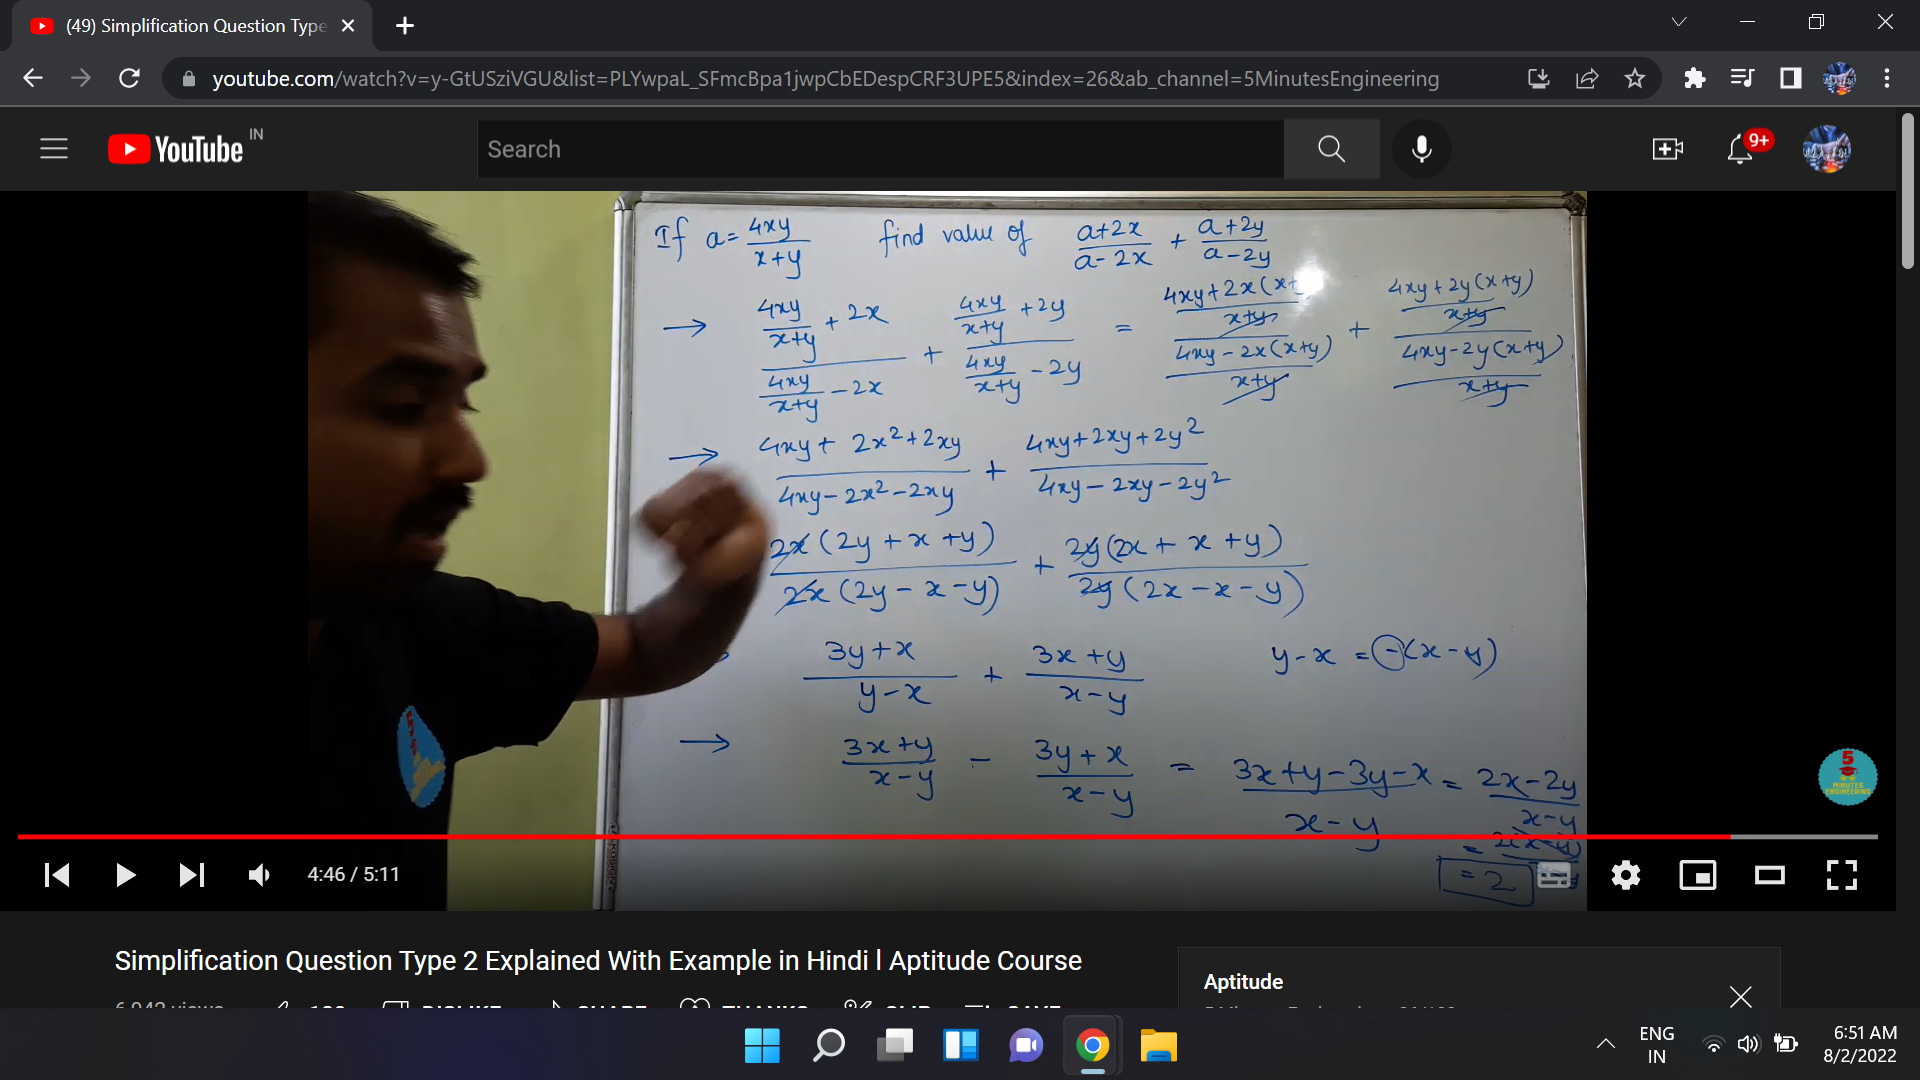 (49) Simplification Question Type
youtube.com/watch?v=y-GtUSziVGU&list=PLYwpaL_SFmcBpa1jwpCbEDespCRF3UPE5&index=26&ab_channel=5MinutesEngineering
YouTube IN
Search
9+
If a = 4xy/(x+y) find value of (a+2x)/(a-2x) + (a+2y)/(a-2y)
→ (4xy/(x+y) + 2x)/(4xy/(x+y) - 2x) + (4xy/(x+y) + 2y)/(4xy/(x+y) - 2y) = ((4xy+2x(x+y))/(x+y))/((4xy-2x(x+y))/(x+y)) + ((4xy+2y(x+y))/(x+y))/((4xy-2y(x+y))/(x+y))
→ (4xy + 2x²+2xy)/(4xy-2x²-2xy) + (4xy+2xy+2y²)/(4xy-2xy-2y²)
2x(2y+x+y)/2x(2y-x-y) + 2y(2x+x+y)/2y(2x-x-y)
(3y+x)/(y-x) + (3x+y)/(x-y) y-x = -(x-y)
→ (3x+y)/(x-y) - (3y+x)/(x-y) = (3x+y-3y-x)/(x-y) = (2x-2y)/(x-y)
= 2(x-y)/(x-y)
= 2
5 MINUTES ENGINEERING
4:46 / 5:11
Simplification Question Type 2 Explained With Example in Hindi l Aptitude Course
Aptitude
6,942 views
DISLIKE SHARE THANKS CLIP SAVE
ENG
IN
6:51 AM
8/2/2022